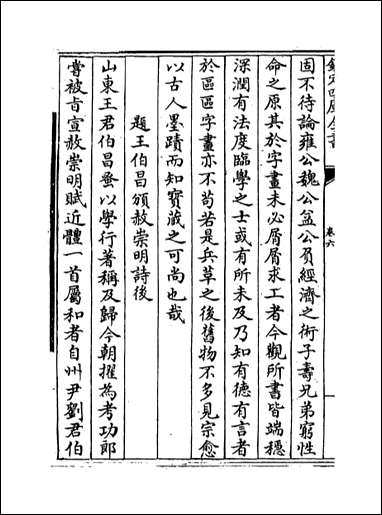 欽定四庫全書
卷六
固不待論雍公魏公益公負經濟之術子壽兄弟窮性
命之原其於字畫未必屑屑求工者今觀所書皆端穩
深潤有法度臨學之士或有所未及乃知有德有言者
於區區字畫亦不苟若是兵草之後舊物不多見宗愈
以古人墨蹟而知寳藏之可尚也哉
題王伯昌頒赦崇明詩後
山東王君伯昌蚤以學行著稱及歸今朝擢為考功郎
嘗被㫖宣赦崇明賦近體一首屬和者自州尹劉君伯